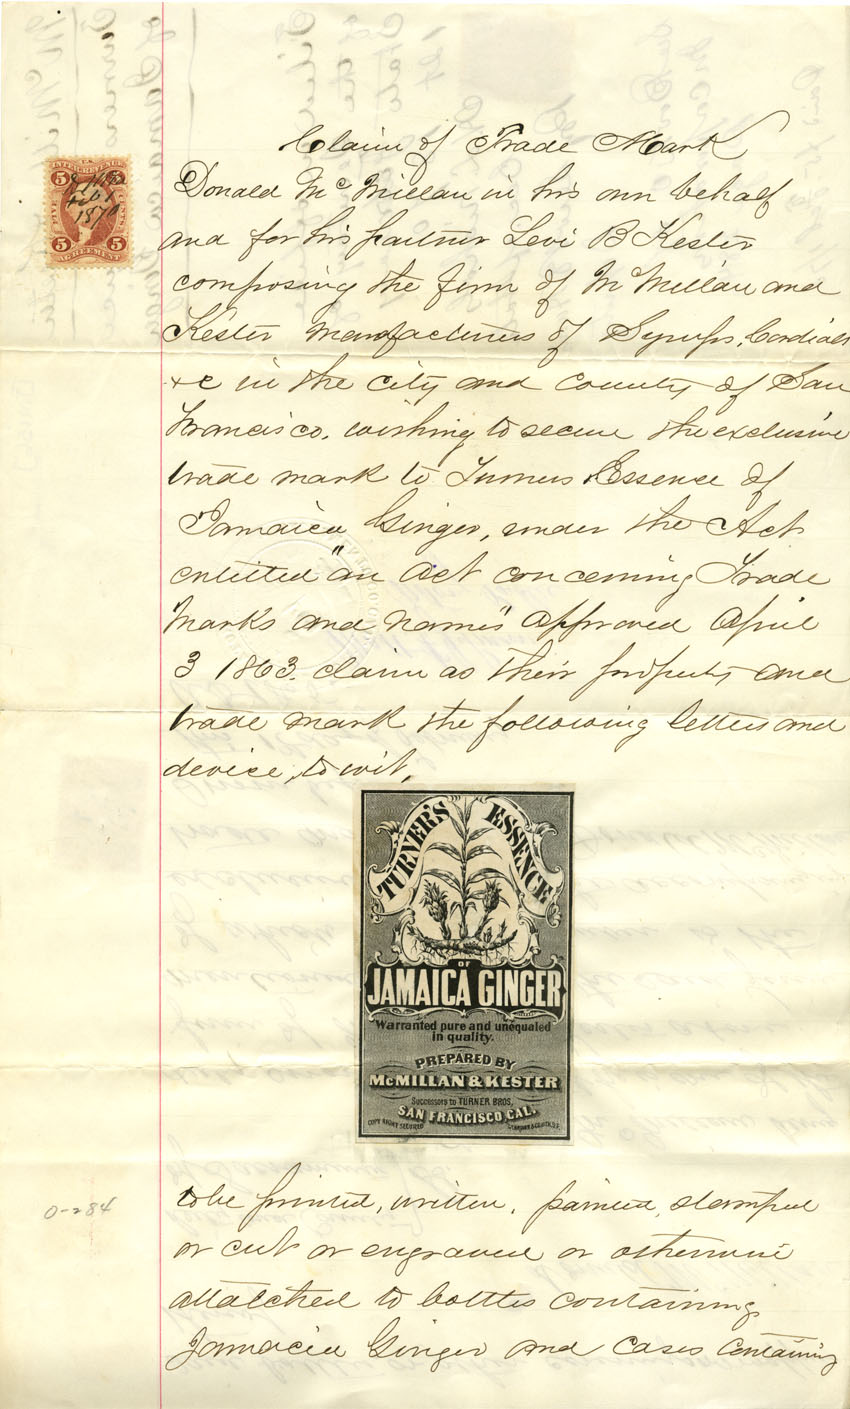 Claim of Trade Mark
Donald McMillan in his own behalf
and for his partner Levi B Kester
composing the firm of McMillan and
Kester manufacturers of Syrups, Cordials
&c in the city and county of San
Francisco. wishing to secure the exclusive
trade mark to Turners Essence of
Jamaica Ginger, under the Act
entitled "an Act concerning Trade
Marks and names" approved April
3 1863. claim as their property and
trade mark the following letters and
device, to wit,
INTER. REVENUE
5 5
Feb 1
1870
FIVE CENTS
5 5
AGREEMENT
TURNER'S ESSENCE
OF
JAMAICA GINGER
Warranted pure and unequaled
in quality.
PREPARED BY
McMILLAN & KESTER
Successors to TURNER BROS.
SAN FRANCISCO, CAL.
COPY RIGHT SECURED
to be printed, written, painted, stamped
or cut or engraved or otherwise
attatched to bottles containing
Jamacia Ginger and cases containing
0-284